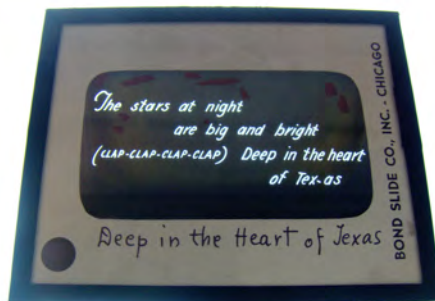 The stars at night
are big and bright
(CLAP-CLAP-CLAP-CLAP) Deep in the heart
of Tex-as
Deep in the Heart of Texas
BOND SLIDE CO., INC. - CHICAGO